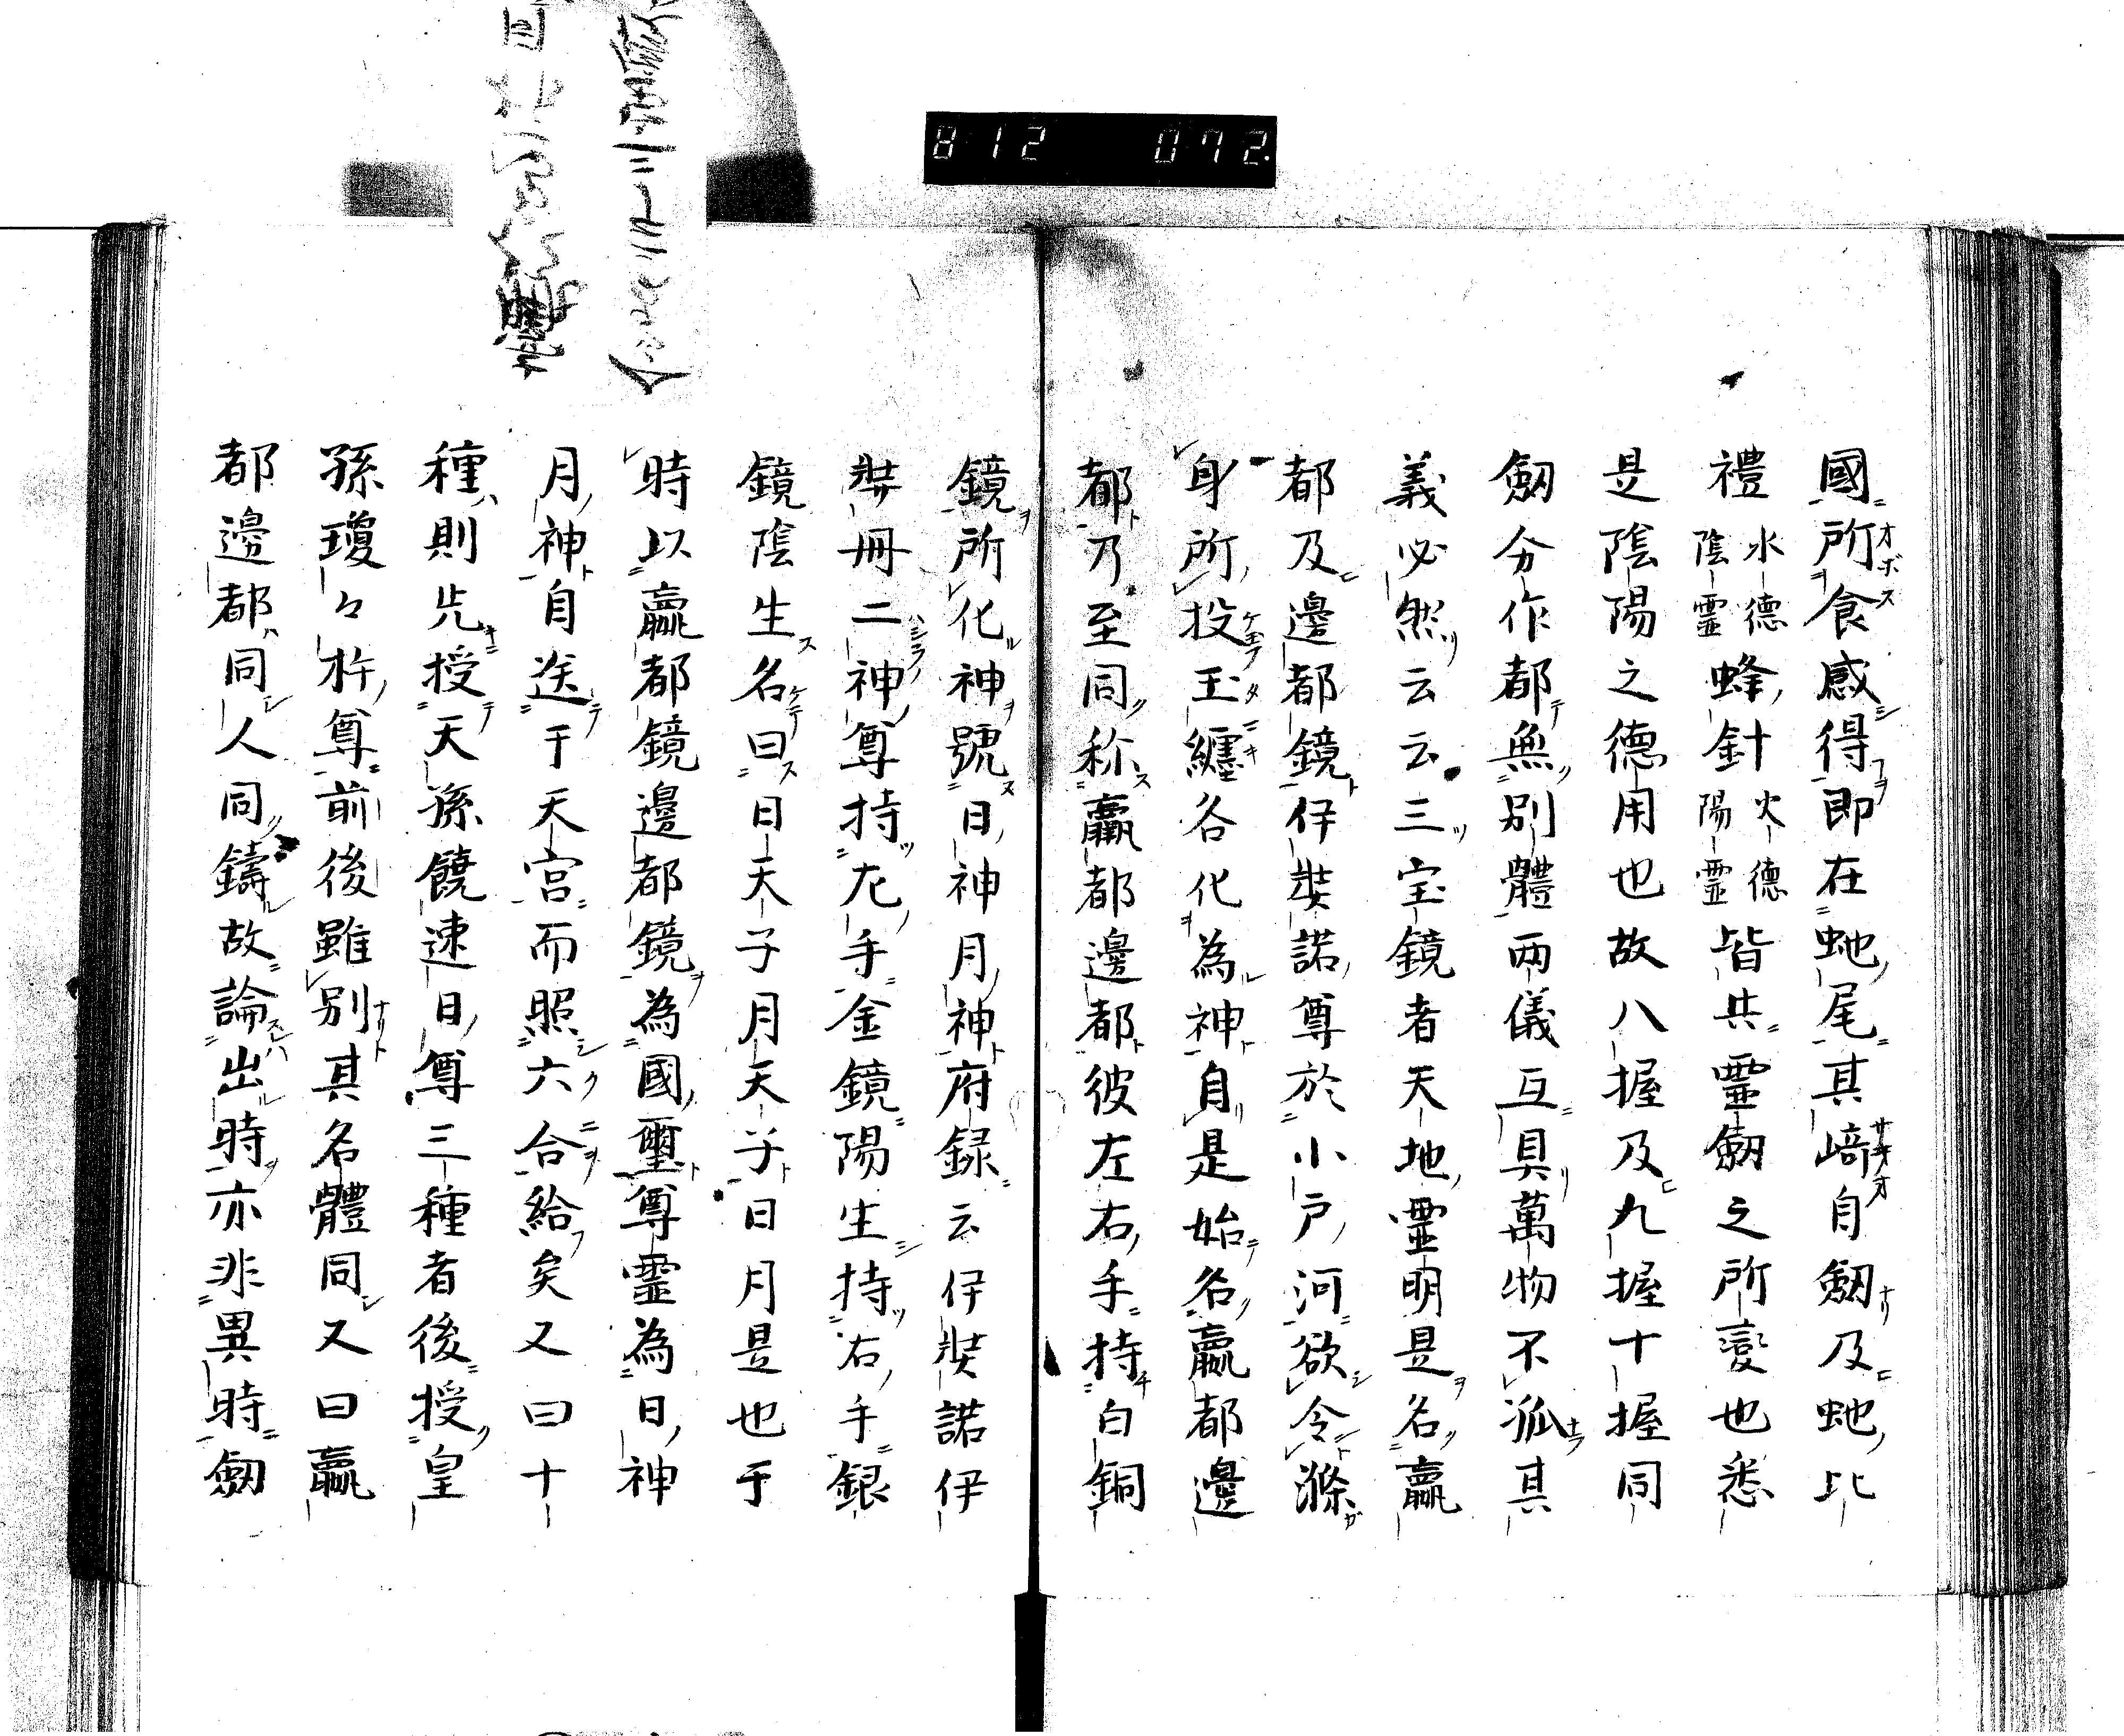 812 072.
國所食感得即在虵尾其﨑自劔及虵比
禮水德陰靈蜂針火德陽靈皆共靈劔之所變也悉
是陰陽之德用也故八握及九握十握同
劔分作都無別體兩儀互具萬物不孤其
義必然云云三宝鏡者天地靈明是名羸
都及邊都鏡伊弉諾尊於小戸河欲令滌
身所投玉纏各化為神自是始名羸都邊
都乃至同称羸都邊都彼左右手持白銅
鏡所化神號日神月神府録云伊弉諾伊
弉冊二神尊持左手金鏡陽生持右手銀
鏡陰生名曰日天子月天子日月是也于
時以羸都鏡邊都鏡為國璽尊霊為日神
月神自送于天宮而照六合給矣又曰十
種則先授天孫饒速日尊三種者後授皇
孫瓊々杵尊前後雖別其名體同又曰羸
都邊都同人同鑄故論出時亦非異時劔